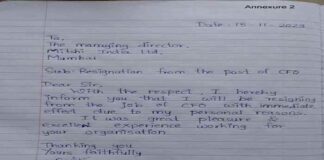 Annexure 2
Date - 15-11-2023
To,
The managing director.
Mitshi India Ltd.
Mumbai
Sub: Resignation from the post of CFO
Dear Sir,
With the respect, I hereby
inform you that I will be resigning
from the Job of CFO with immediate
effect due to my personal reasons.
It was great pleasure &
excellent experience working for
your organisation.
Thanking you
Yours faithfully